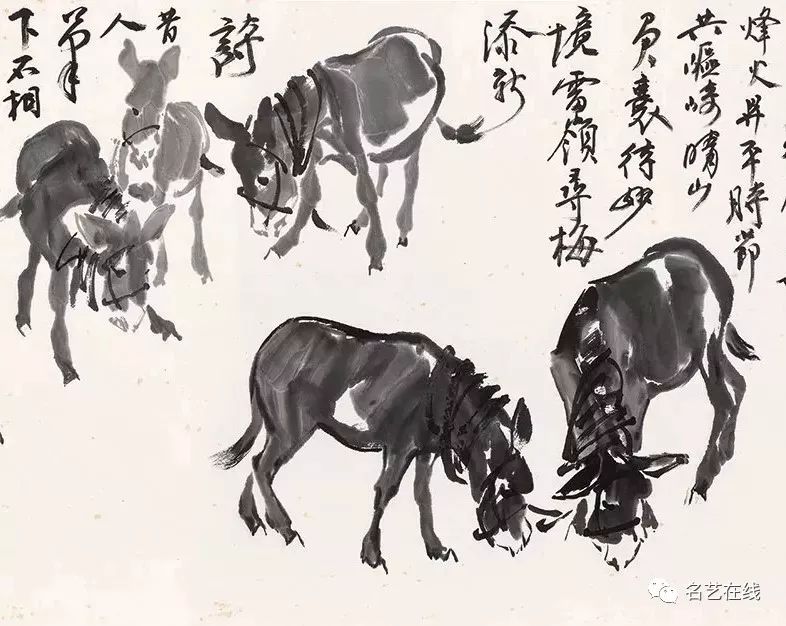 烽火昇平時節
共嶇崎晴山
負囊待妙
境雪嶺尋梅
添新
詩
昔
人
筆
下不相
名艺在线